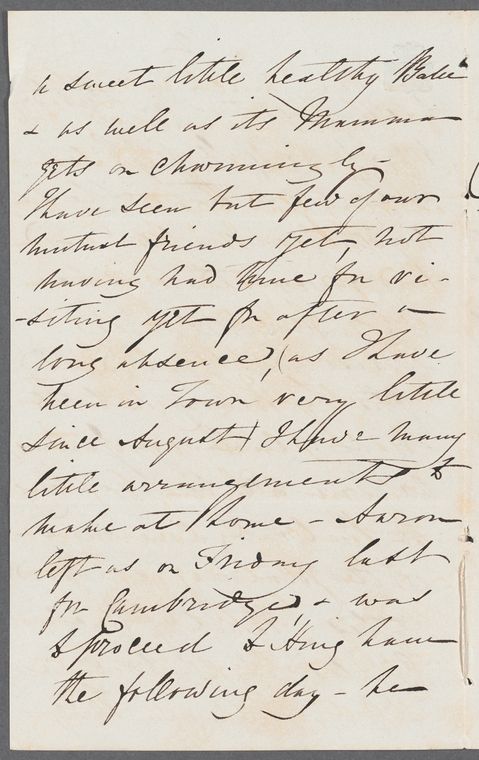 a sweet little healthy Babe
& as well as its Mamma
gets on charmingly -
I have seen but few of our
mutual friends yet, not
having had time for vi-
-siting yet for after a
long absence, (as I have
been in Town very little
since August) I have many
little arrangements to
make at home - Aaron
left us on Friday last
for Cambridge, & was
to proceed to Hingham
the following day - he